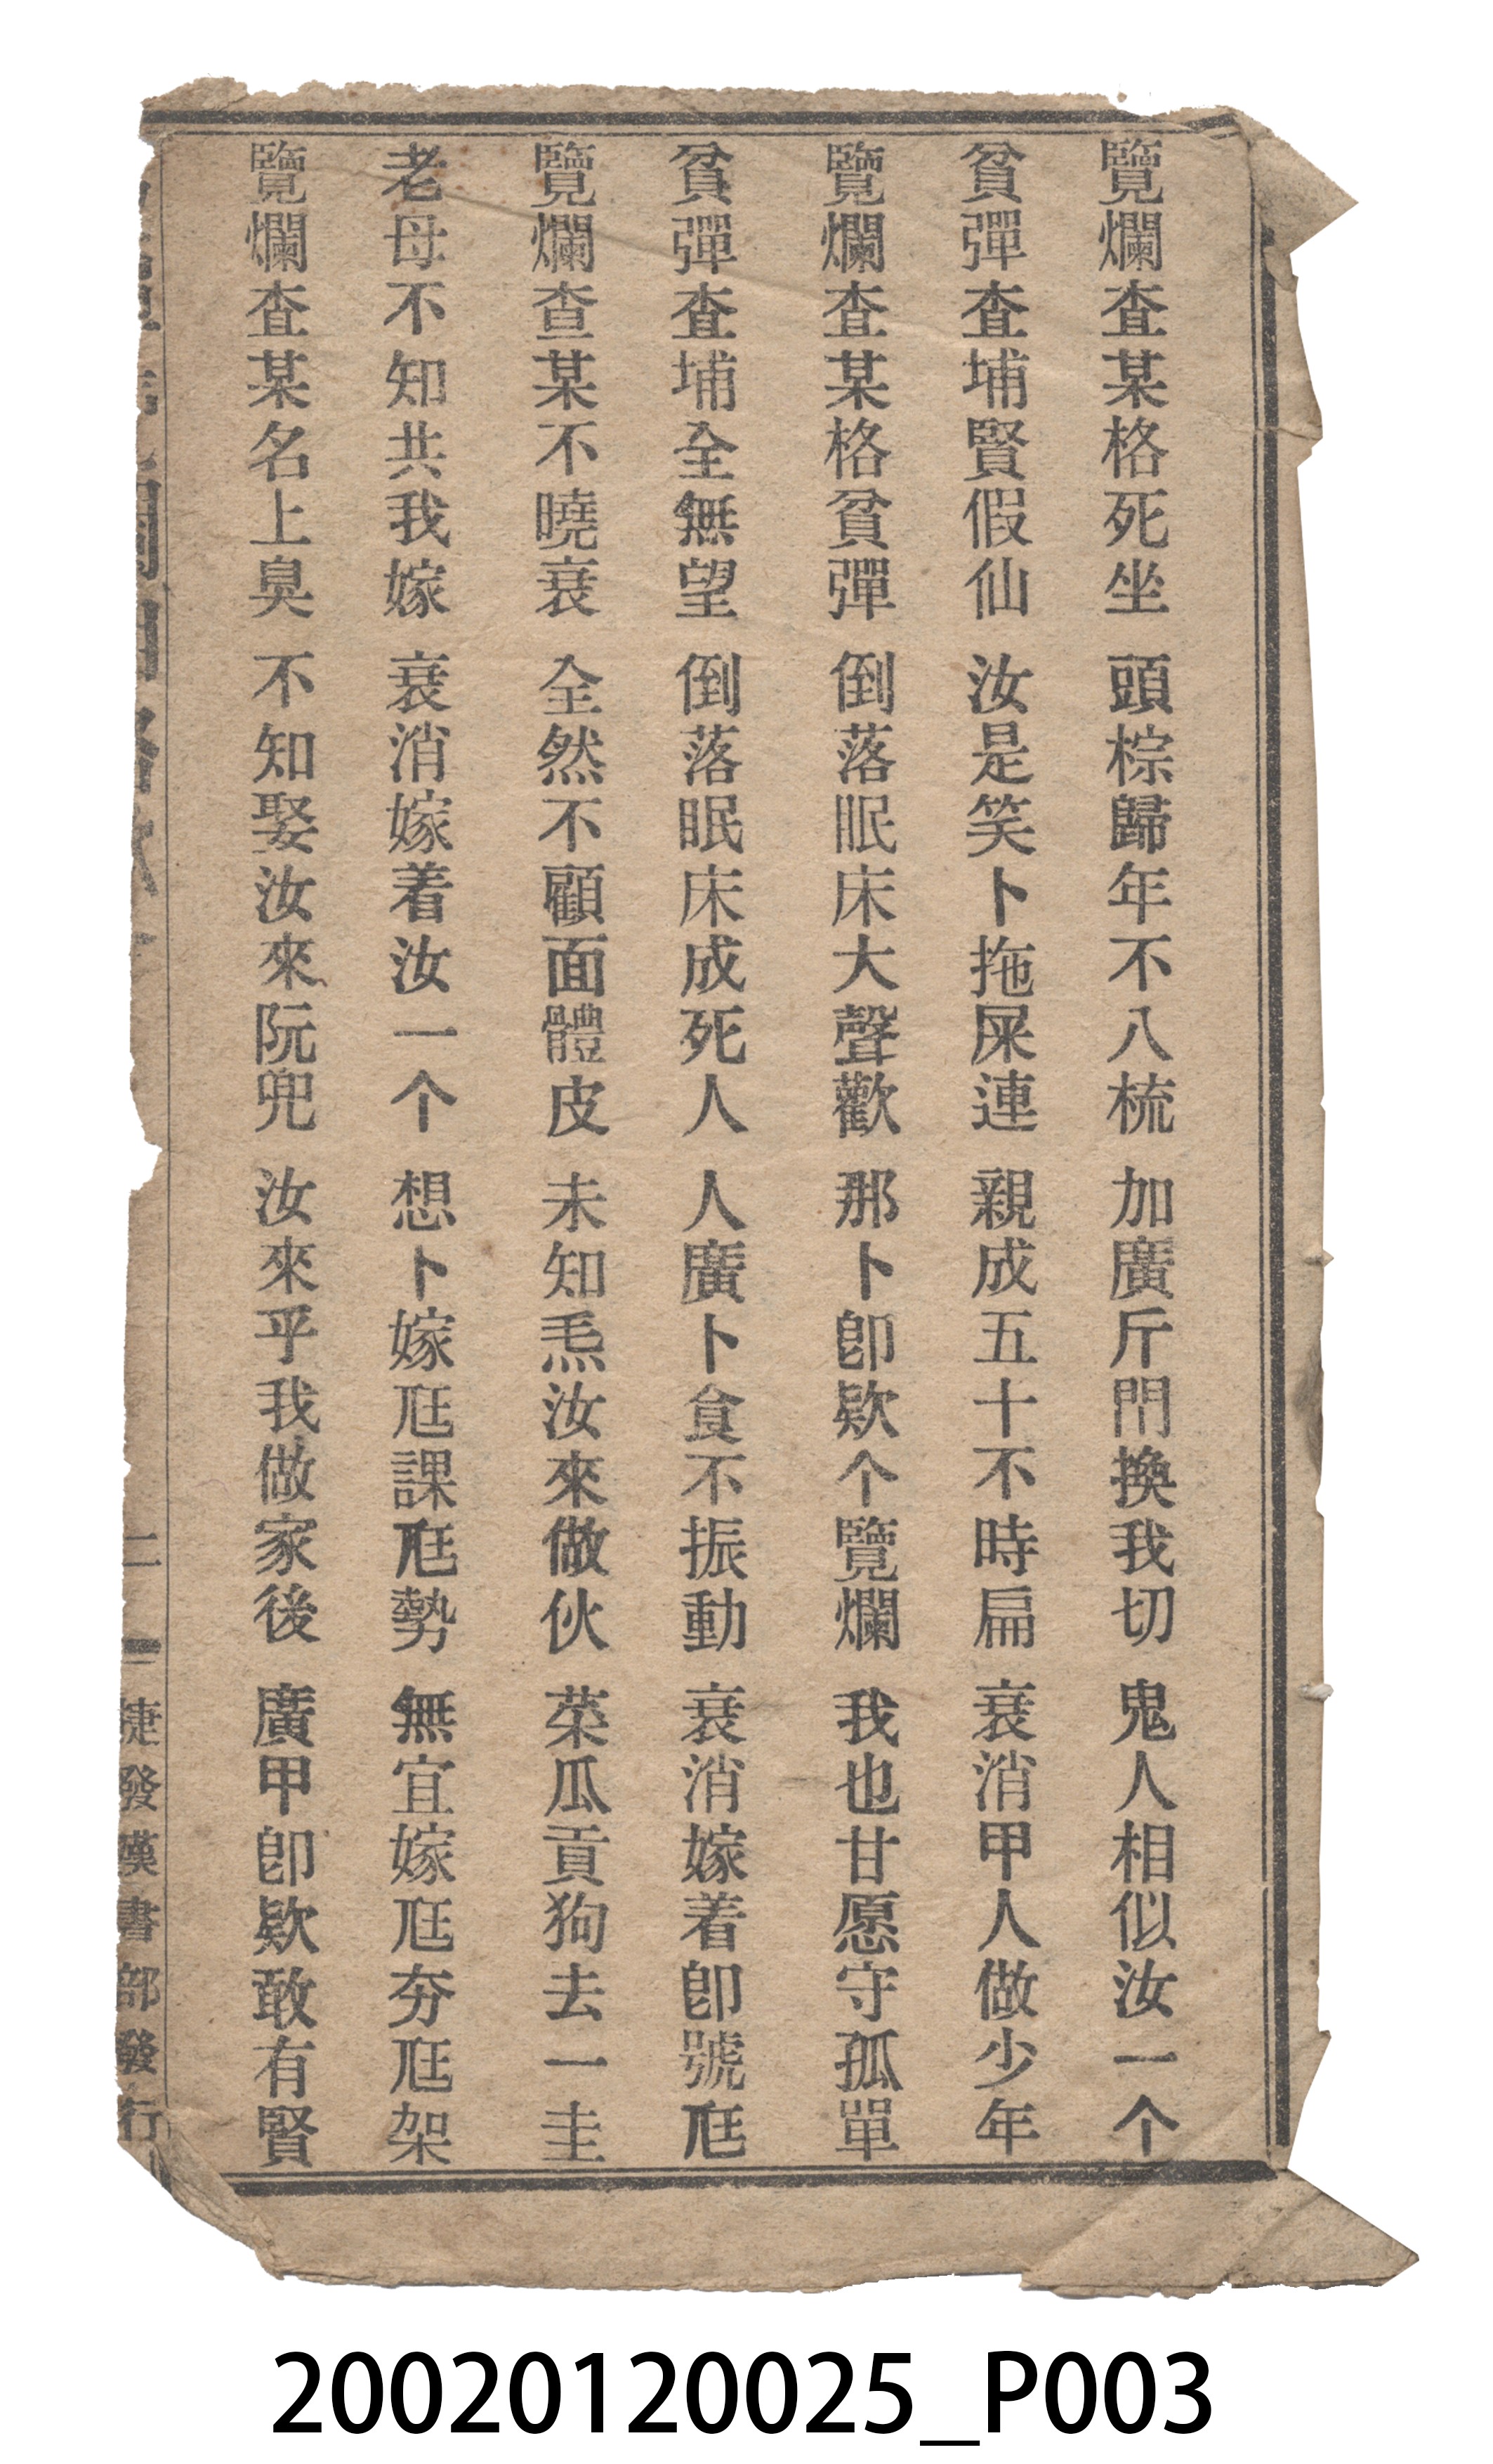 覽爛查某格死坐 頭棕歸年不八梳 加廣斤閂換我切 鬼人相似汝一个
貧彈查埔賢假仙 汝是笑卜拖屎連 親成五十不時扁 衰消甲人做少年
覽爛查某格貧彈 倒落眠床大聲歡 那卜卽欵个覽爛 我也甘愿守孤單
貧彈查埔全無望 倒落眠床成死人 人廣卜食不振動 衰消嫁着卽號尫
覽爛查某不曉衰 全然不顧面體皮 未知炁汝來做伙 菜瓜貢狗去一圭
老母不知共我嫁 衰消嫁着汝一个 想卜嫁尫課尫勢 無宜嫁尫夯尫架
覽爛查某名上臭 不知娶汝來阮兜 汝來乎我做家後 廣甲卽欵敢有賢
二
捷發漢書部發行
20020120025_P003